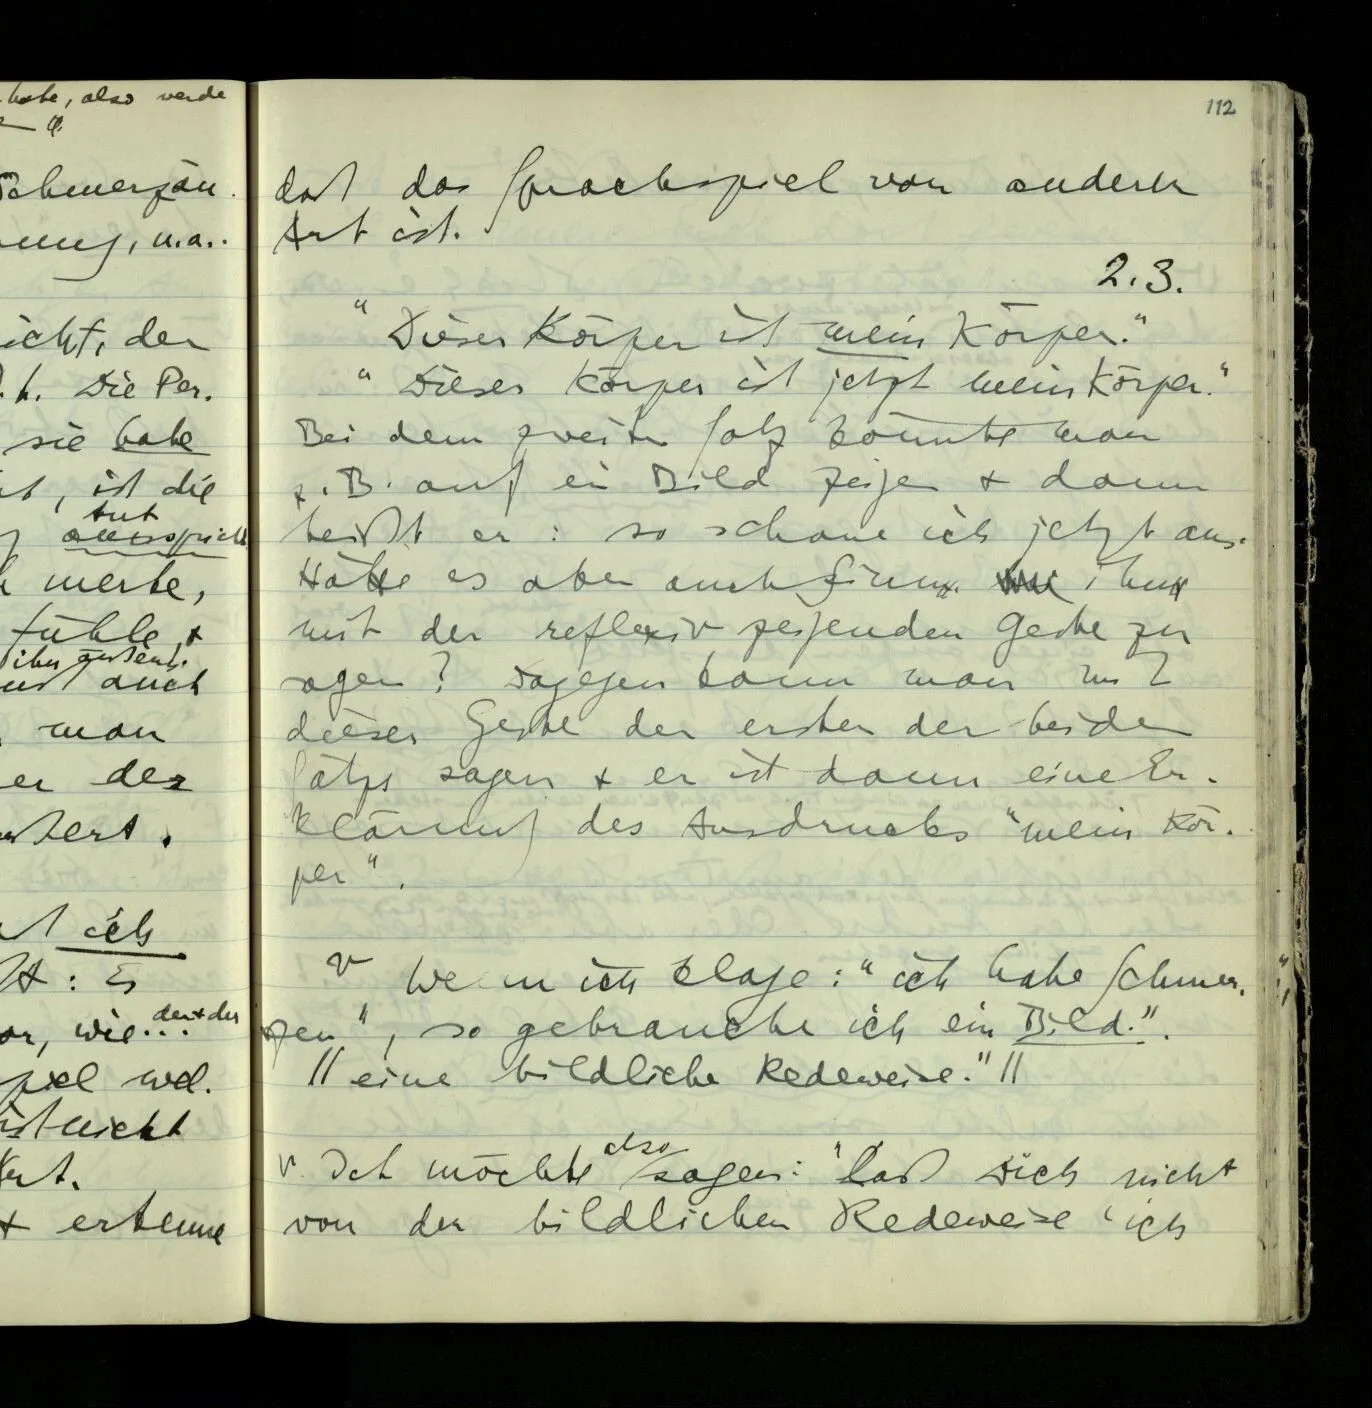 habe, also werde
Schmerzäu
nung, u.a..
icht, der
d.h. Die Per.
sie habe
ist, ist die
tut
ausspricht
merke,
fühle, +
ihn
auch
man
er des
ich
A: Es
or, wie... den + der
piel wel.
ist nicht
+ erkenne
112
daß das Sprachspiel von anderer
Art ist.
2.3.
"Dieser Körper ist mein Körper."
"Dieser Körper ist jetzt mein Körper."
Bei dem zweiten Satz könnte man
z.B. auf ein Bild zeigen + dann
heißt er: so schaue ich jetzt aus.
Hätte es aber auch Sinn ihn
mit der reflexiv zeigenden Geste zu
sagen? Dagegen kann man mit
dieser Geste den ersten der beiden
Sätze sagen + er ist dann eine Er-
klärung des Ausdrucks "mein Kör-
per".
v Wenn ich klage: "ich habe Schmer-
zen", so gebrauche ich ein Bild.".
// eine bildliche Redeweise." //
v. Ich möchte also sagen: "Laß Dich nicht
von der bildlichen Redeweise 'ich